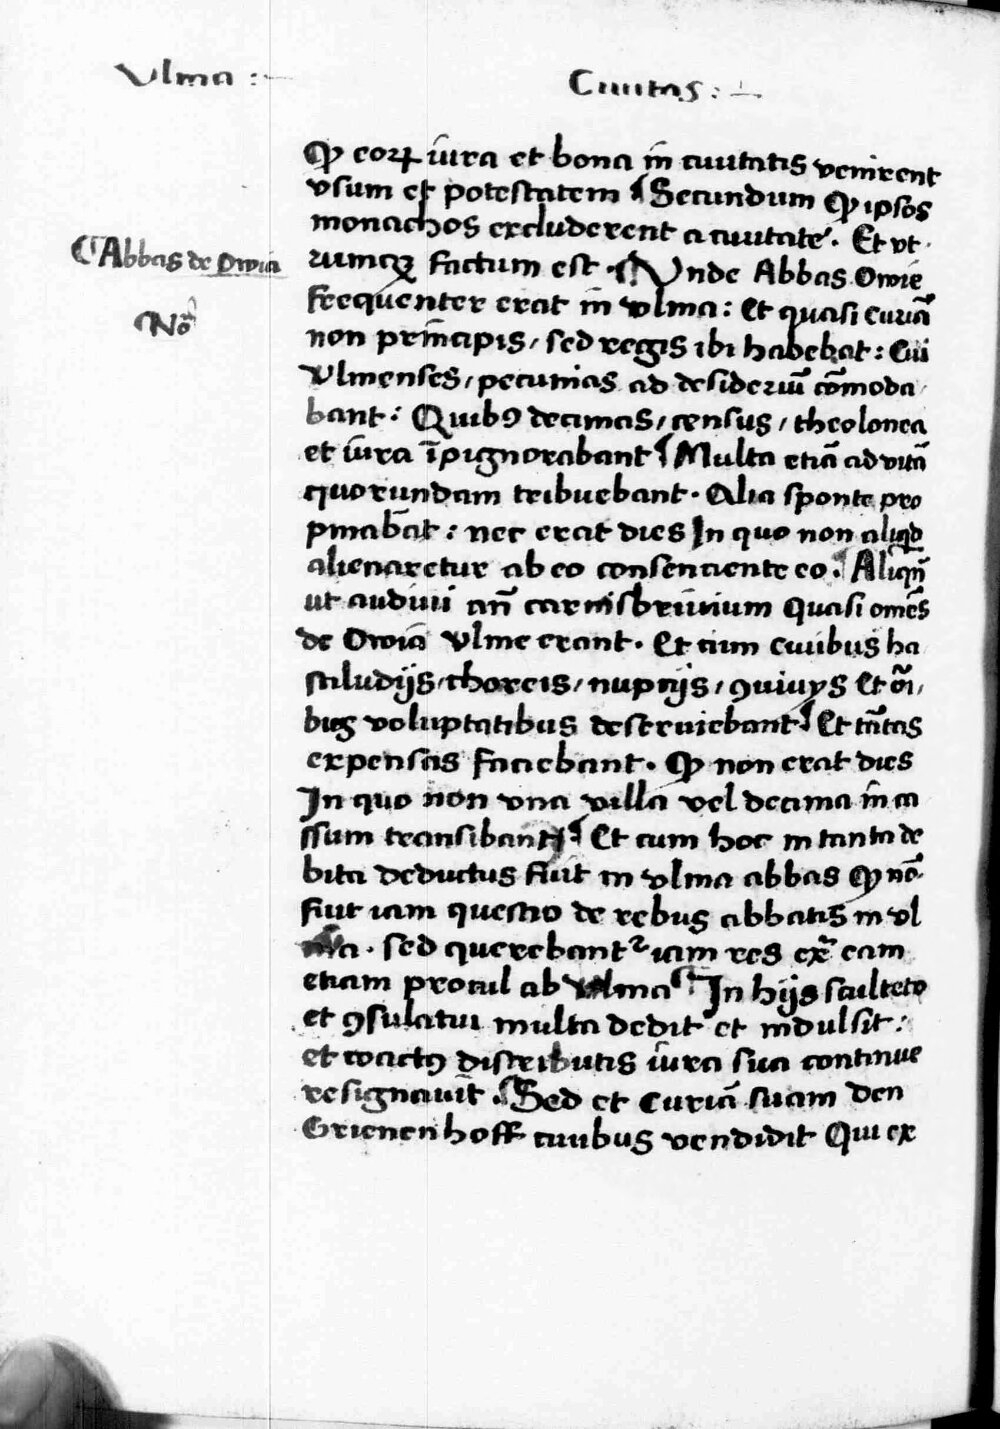 Vlma :-
Ciuitas :-
Abbas de Owia
Nō
Ꝙ eoꝝ iura et bona in ciuitatis venirent
vsum et potestatem Secundum Ꝙ ipsos
monachos excluderent a ciuitate. Et vt
rumqꝫ factum est. Vnde Abbas Owie
frequenter erat in vlma: Et quasi curiā
non principis, sed regis ibi habebat: Cui
Vlmenses, pecunias ad desideriū cōmoda
bant: Quibꝯ decimas, census, theolonea
et iura īpignorabant Multa etiā ad vitā
quorundam tribuebant. Alia sponte pro
pinabāt: nec erat dies In quo non aliqd
alienaretur ab eo consenciente eo. Aliqn̄
ut audiui an̄ carnisbriuium quasi om̄es
de Owiā Vlme erant. Et cum ciuibus ha
stiludijs, choreis, nuptijs, ꝯuiuys Et oī,
bus voluptatibus deseruiebant Et tātas
expensas faciebant. Ꝙ non erat dies
In quo non vna villa vel decima in ca
ssum transibant Et cum hoc in tanta de
bita deductus fuit in vlma abbas Ꝙ nō
fuit iam questio de rebus abbatis in vl
ma. sed querebant iam res ex eam
etiam procul ab Vlma In hijs sculteto
et ꝯsulatui multa dedit et indulsit:
et coactꝯ distributis iura sua continue
resignauit. Sed et Curiā suam den
Grienenhoff ciuibus vendidit Qui ex